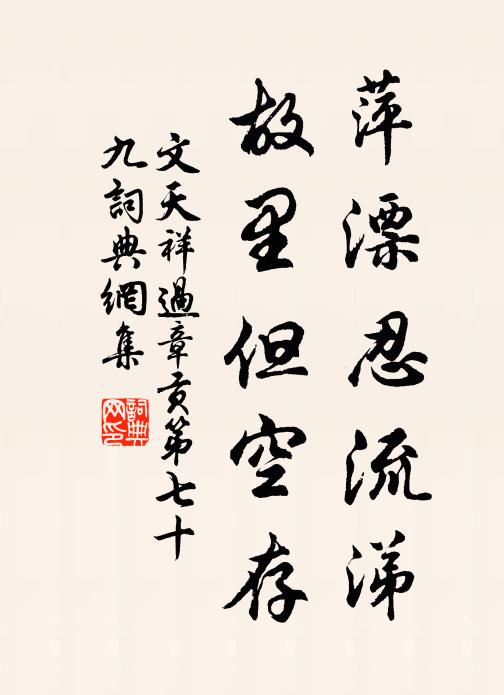 萍漂忍流涕
故里但空存
文天祥過章贡第七十
九詞典網集
詞典
网印